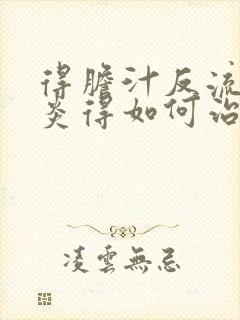 得膽汁反流
炎得如何治
凌雲無忌